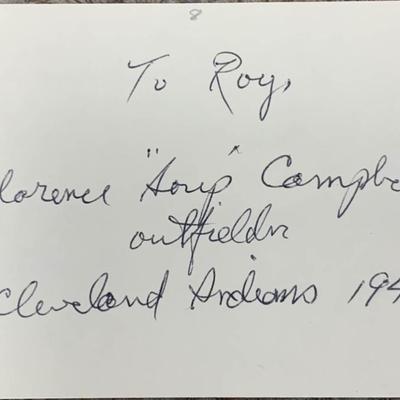 8
To Roy,
larence "Soup" Campbe
outfielder
Cleveland Indians 194